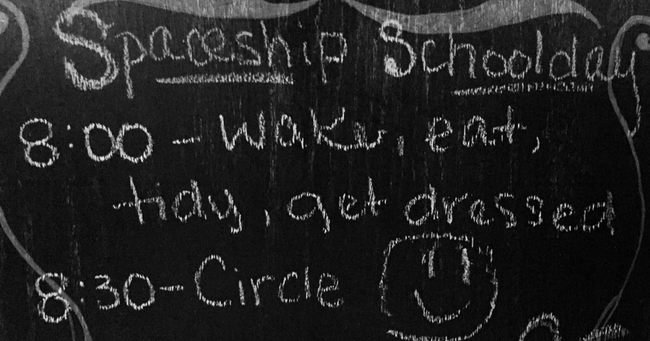 Spaceship Schoolday
8:00 - Wake, eat,
tidy, get dressed
8:30 - Circle